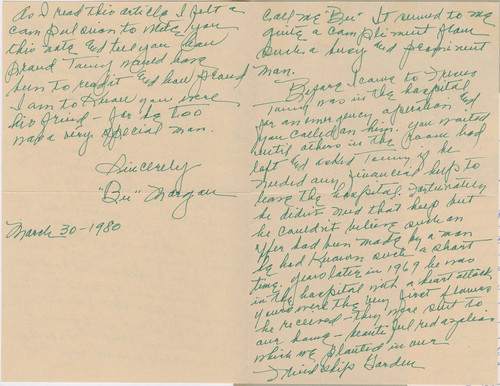 As I read this article I felt a
compulsion to write you
this note and tell you how
proud Tommy would have
been to read it and how proud
I am to know you were
his friend - for he too
was a very special man.
Sincerely
"Bu" Morgan
March 30-1980
call me "Bu" It seemed to me
quite a compliment from
such a busy and prominent
man.
Before I came to
Tommy was in the hospital
for an emergency operation and
you called on him. You waited
until others in the room had
left and asked Tommy if he
needed any financial help to
leave the hospital. Fortunately
he didn't need that help but
he couldn't believe such an
offer had been made by a man
he had known such a short
time. Years later in 1969 he was
in the hospital with a heart attack,
yours were the very first flowers
he received - they were sent to
our home - beautiful red azaleas
which we planted in our
Friendship Garden